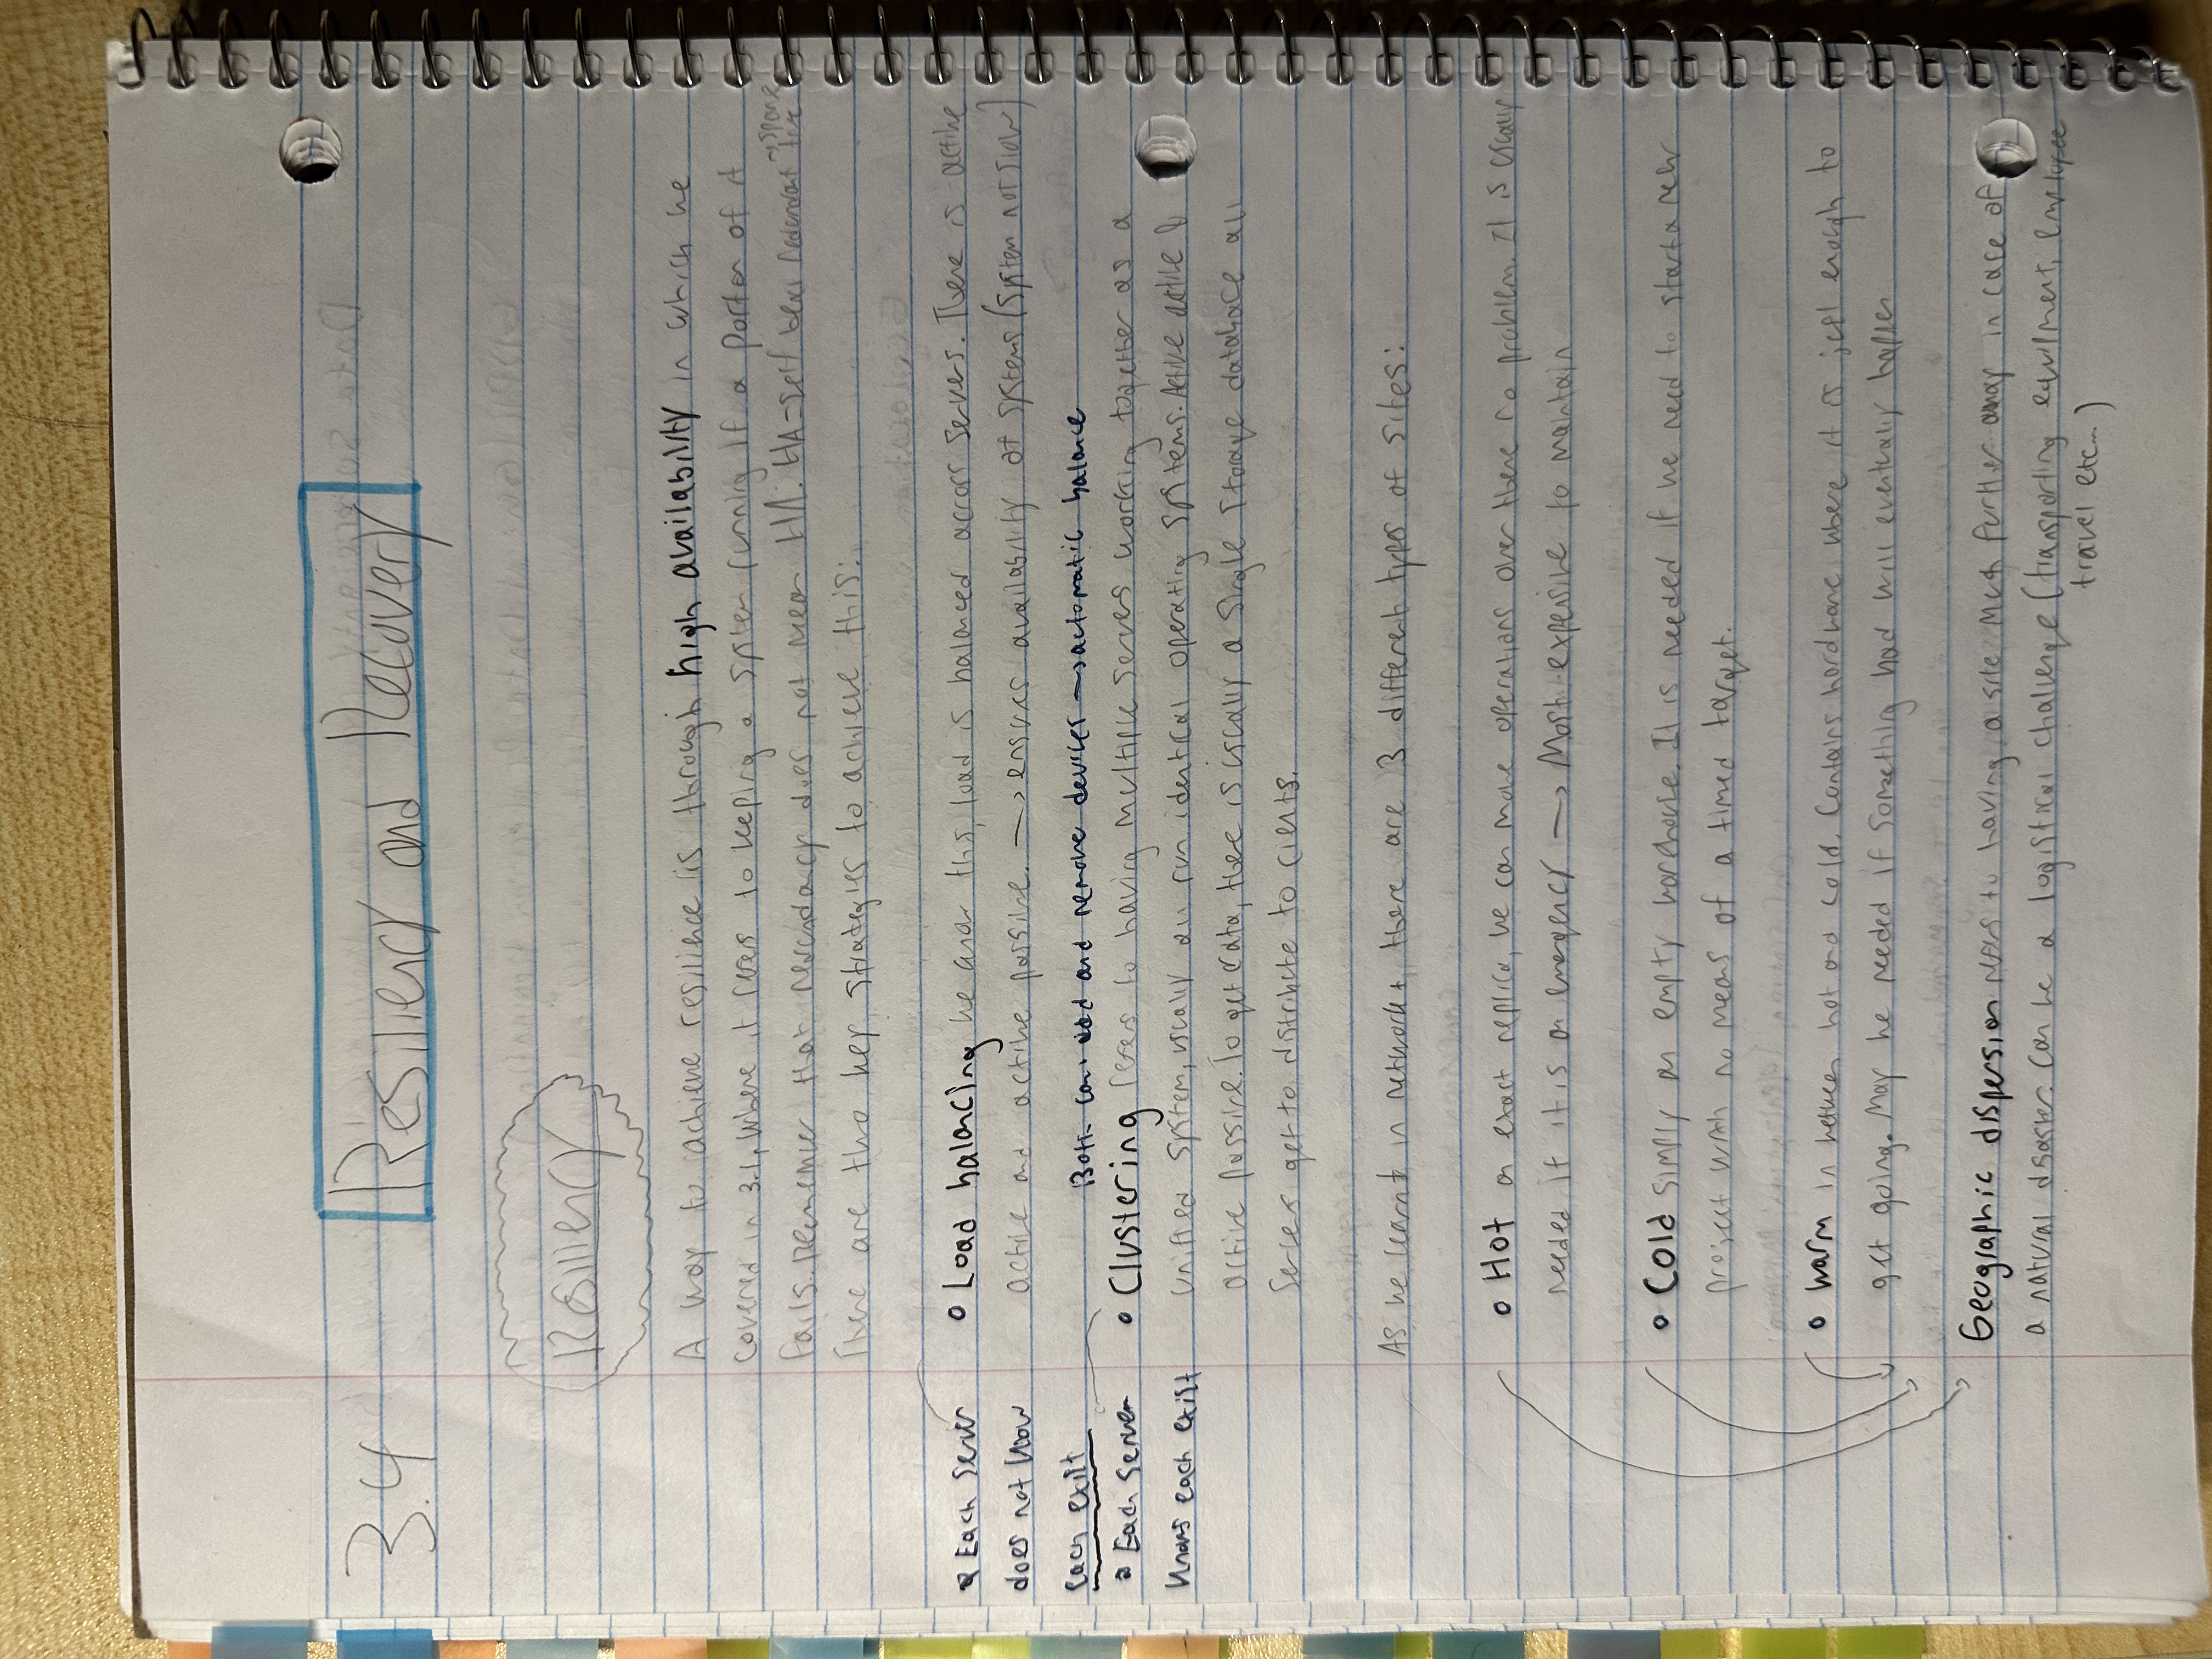 3.4 Resiliency and Recovery
Resiliency
A way to achieve resilience is through high availability in which we
covered in 3.1, where it refers to keeping a system running if a portion of it
fails. Remember that redundancy does not mean HA. HA = self redundant → spare
There are two key strategies to achieve this:
• Each server
does not know
each exist
• Load balancing we know this, load is balanced across servers. There is active
active and active passive. → ensures availability of systems (system not slow)
Both can add and remove devices → automatic balance
• Each server
knows each exist
• Clustering refers to having multiple servers working together as a
unified system, usually all run identical operating systems. Active active &
active passive. To get data, there is usually a single storage database all
servers get to distribute to clients.
As we learnt in network+, there are 3 different types of sites:
• Hot an exact replica, we can move operations over there no problem. It is usually
needed if it is an emergency → Most expensive to maintain
• Cold simply an empty warehouse. It is needed if we need to start a new
project with no means of a timed target.
• Warm in between hot and cold. Contains hardware where it is just enough to
get going. May be needed if something bad will eventually happen
Geographic dispersion refers to having a site much further away in case of
a natural disaster. Can be a logistical challenge (transporting equipment, employee
travel etc...)